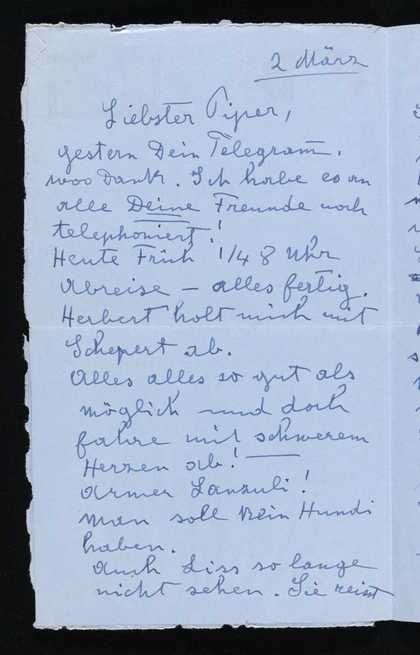 2 März
Liebster Piper,
gestern Dein Telegram.
1000 Dank. Ich habe es an
alle Deine Freunde noch
telephoniert!
Heute Früh 1/4 8 Uhr
Abreise – alles fertig.
Herbert holt mich mit
Schepert ab.
Alles alles so gut als
möglich und doch
fahre mit schwerem
Herzen ab!
Armer Lanzuli!
Man soll kein Hundi
haben.
Auch Liss so lange
nicht sehen. Sie reist